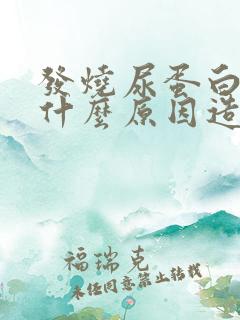 發燒尿蛋白
什麼原因造
福瑞克
未經同意禁止轉載